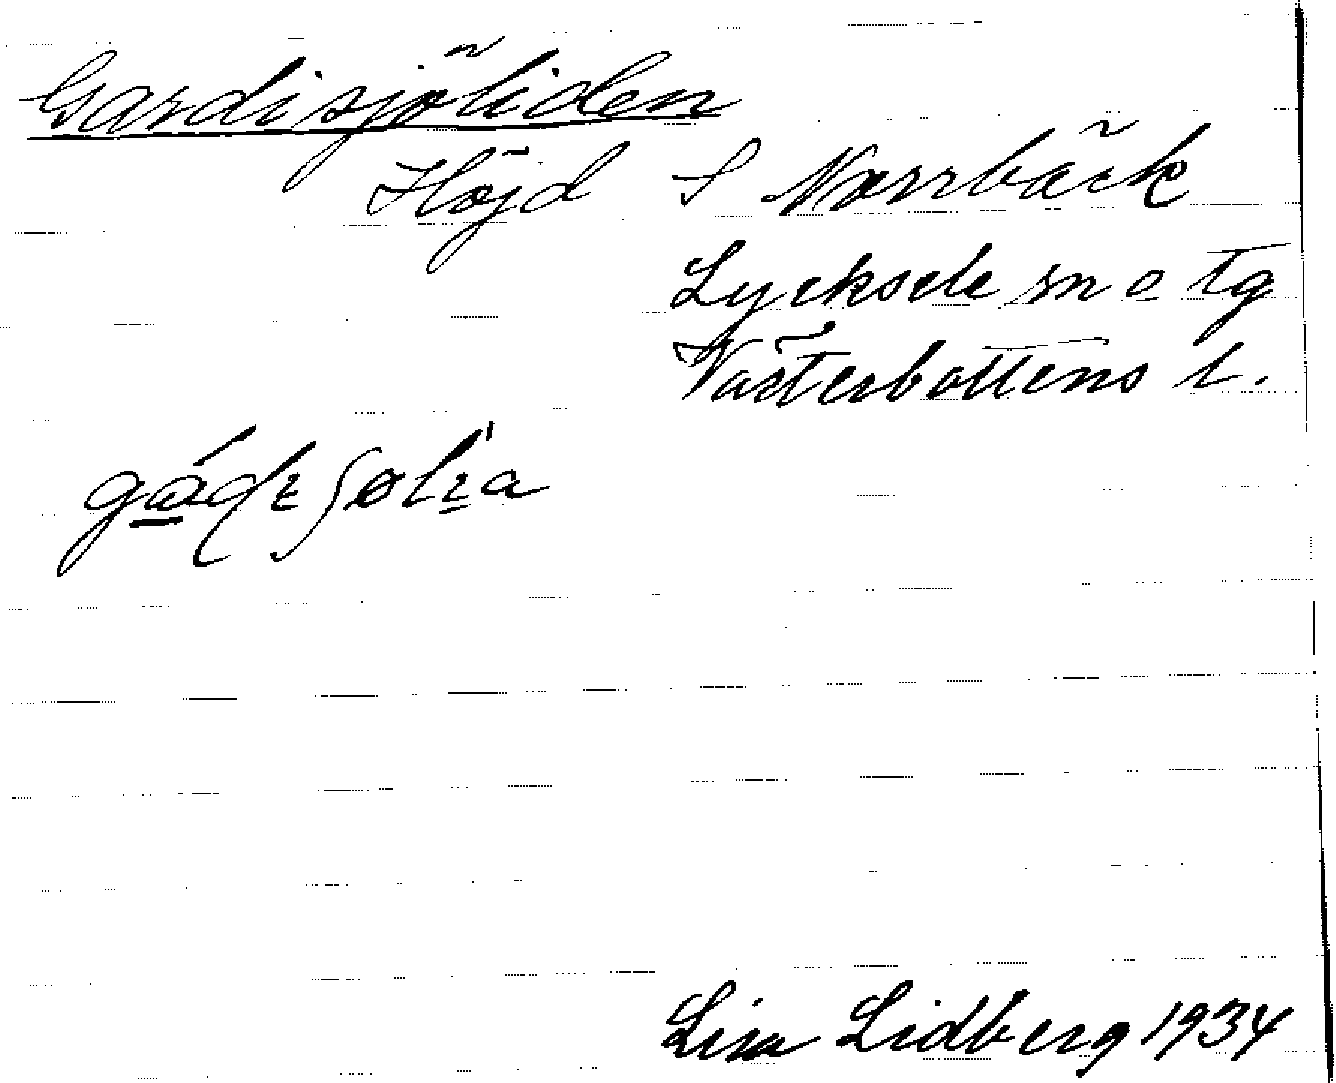 Gardisjöliden
Höjd S Norrbäck
Lycksele sn o tg
Västerbottens l.
Lisa Lidberg 1934